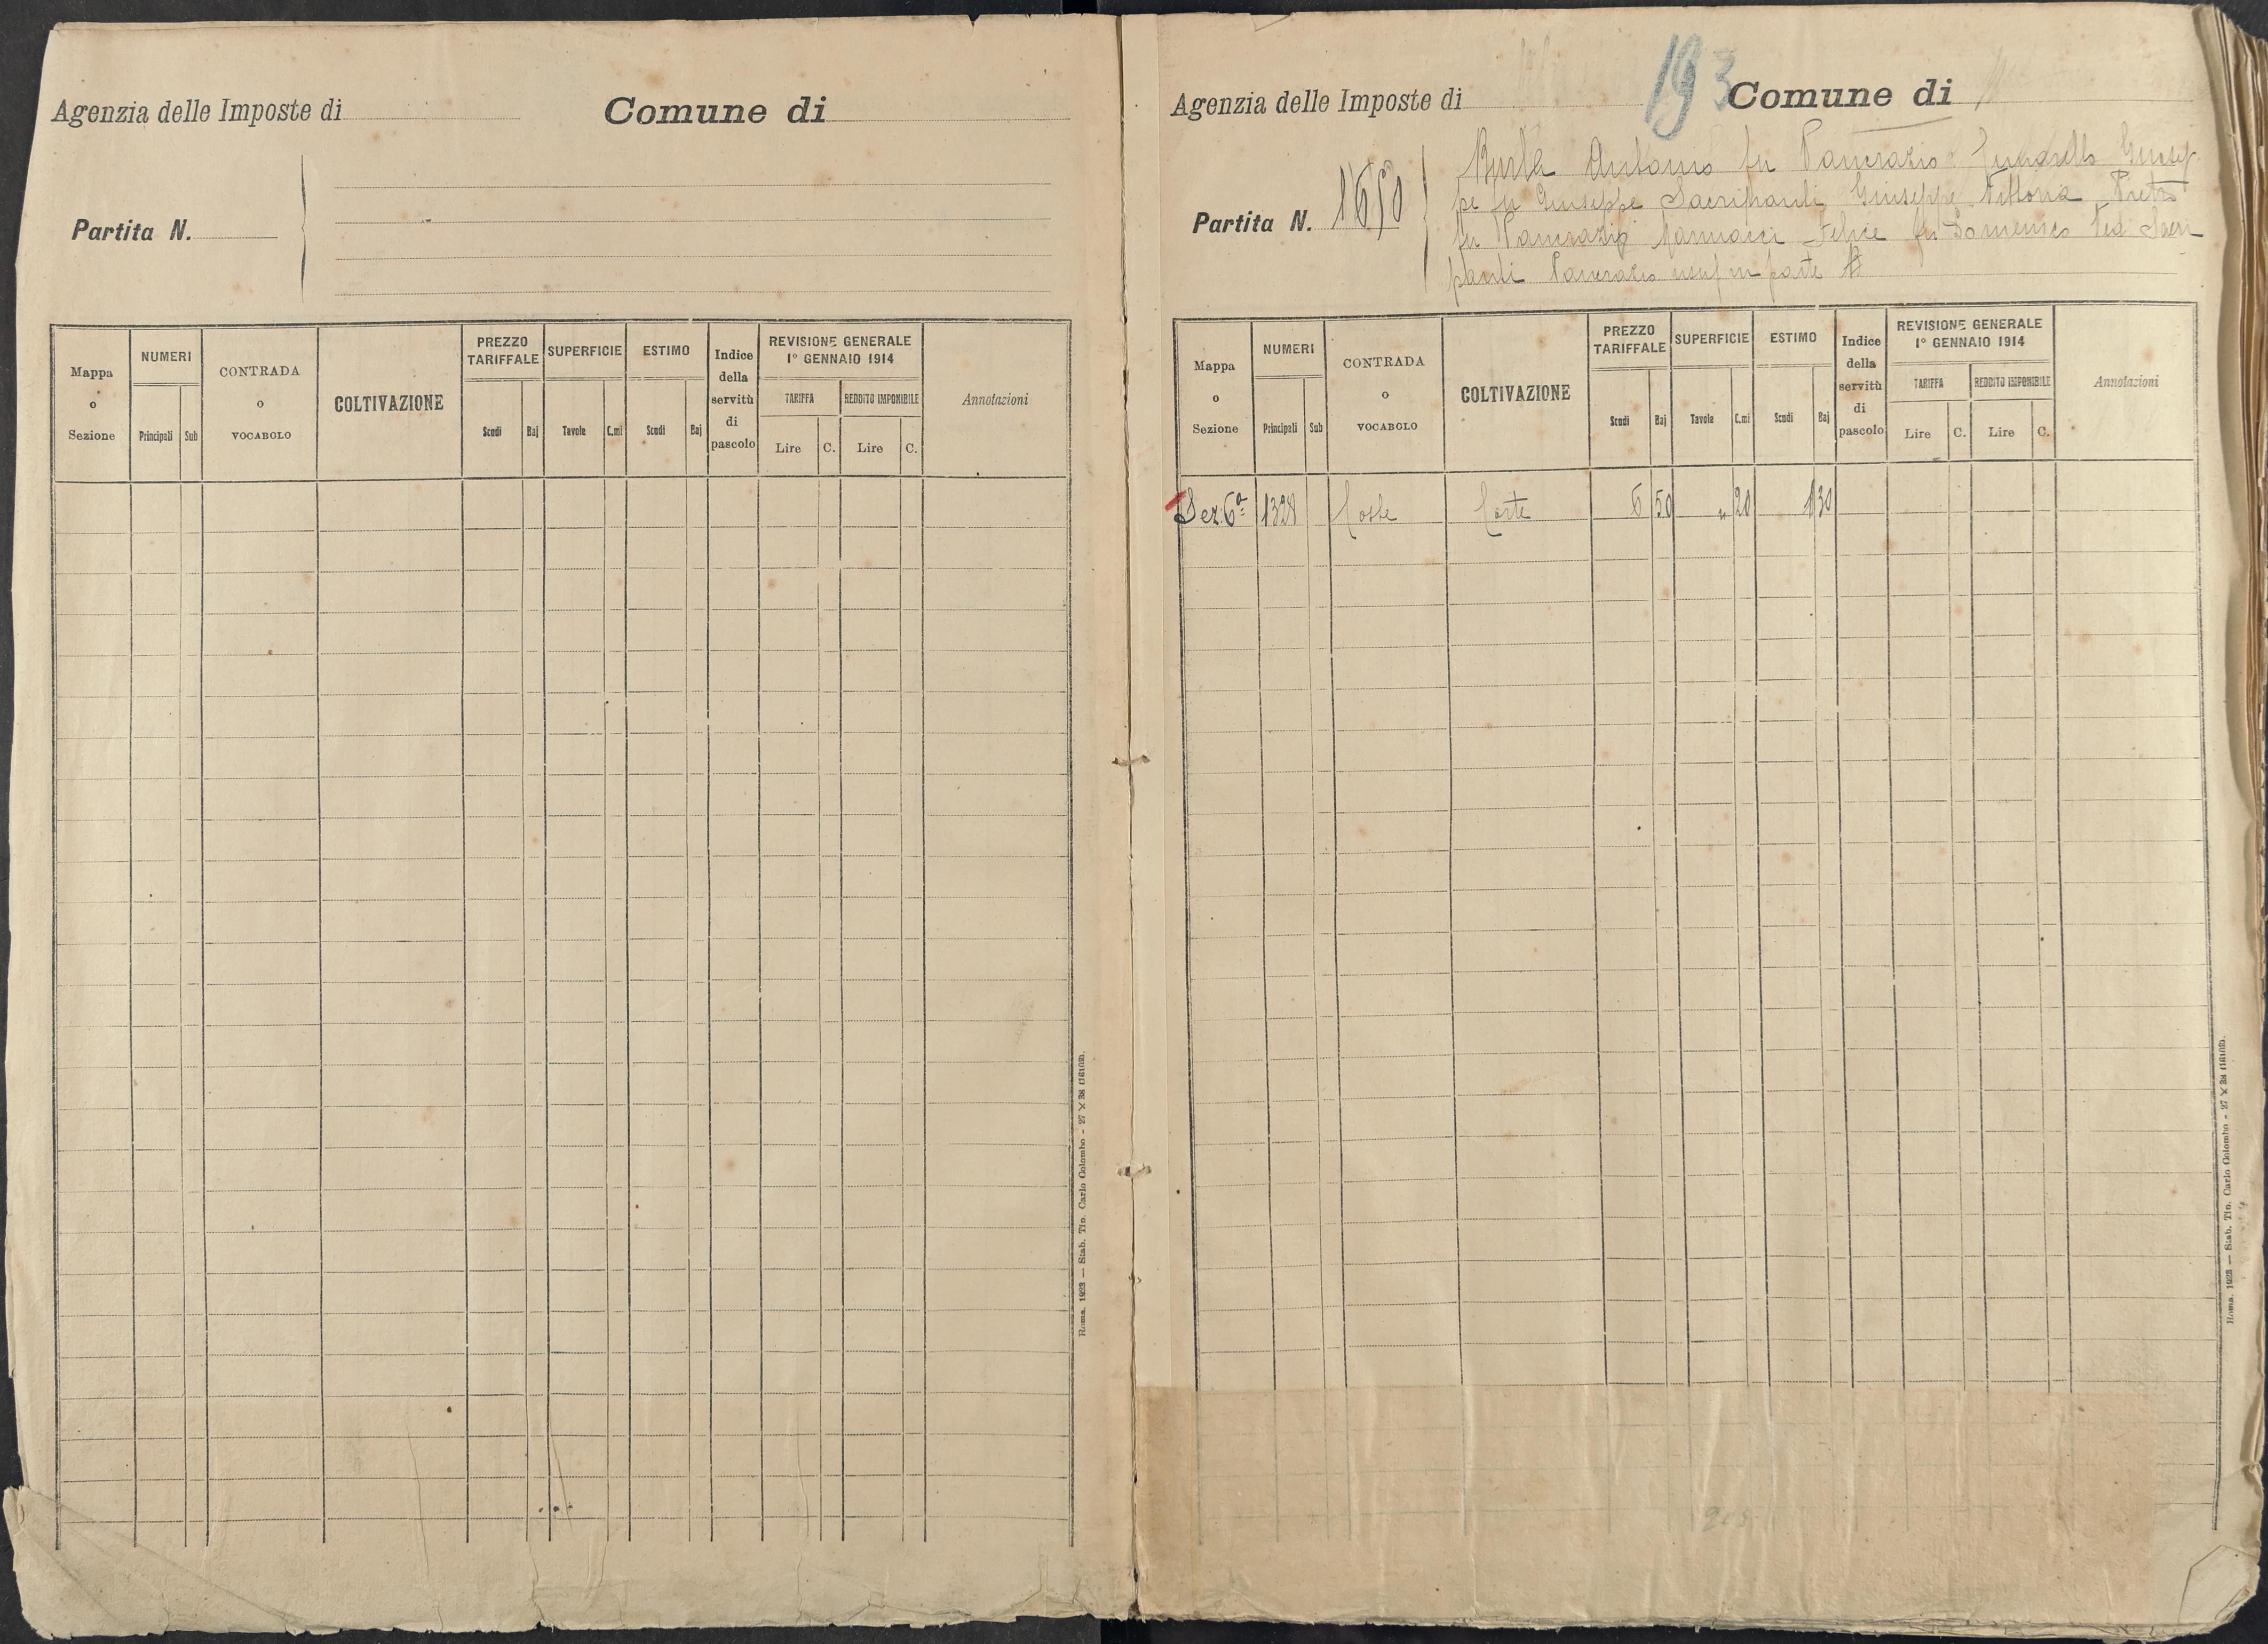 Agenzia delle Imposte di
Comune di
Partita N.
Mappa o Sezione
NUMERI
Principali Sub
CONTRADA o VOCABOLO
COLTIVAZIONE
PREZZO TARIFFALE
Scudi Baj
SUPERFICIE
Tavole C.mi
ESTIMO
Scudi Baj
Indice della servitù di pascolo
REVISIONE GENERALE
1° GENNAIO 1914
TARIFFA
Lire C.
REDDITO IMPONIBILE
Lire C.
Annotazioni
Roma, 1923 — Stab. Tip. Carlo Colombo - 27 X 38
193
Agenzia delle Imposte di
Comune di
Partita N. 1650
Antonio fu Pancrazio
pe fu Giuseppe Sacripanti Giuseppe Vittoria Pietro
fu Pancrazio Iannacci Felice fu Domenico Ved Sacri
panti Pancrazio usuf in parte
Mappa o Sezione
NUMERI
Principali Sub
CONTRADA o VOCABOLO
COLTIVAZIONE
PREZZO TARIFFALE
Scudi Baj
SUPERFICIE
Tavole C.mi
ESTIMO
Scudi Baj
Indice della servitù di pascolo
REVISIONE GENERALE
1° GENNAIO 1914
TARIFFA
Lire C.
REDDITO IMPONIBILE
Lire C.
Annotazioni
Sez. 6ª 1328 Corte 6 50 " 20 1 30
Roma, 1923 — Stab. Tip. Carlo Colombo - 27 X 38